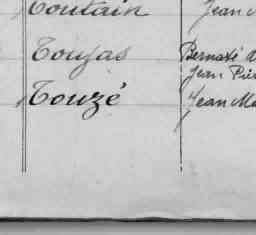 Toutain Jean
Toujas Bernard
Jean
Touzé Jean